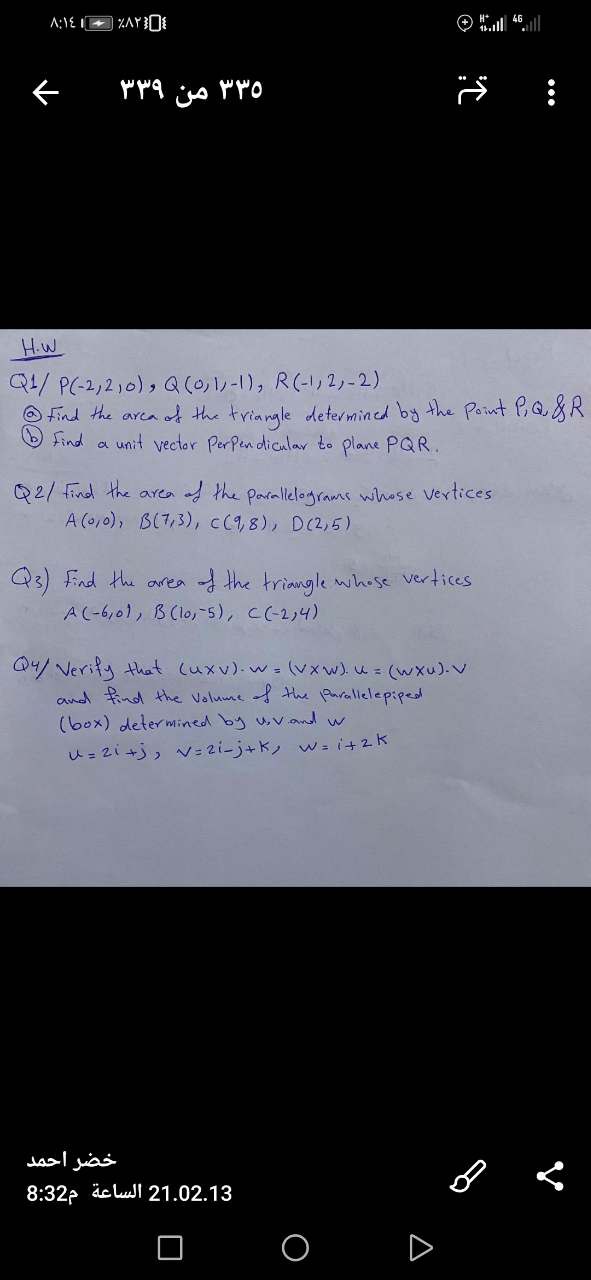 ٨:١٤ ٪٨٢ H+ 4G
٣٣٥ من ٣٣٩
H.W
Q1/ P(-2,2,0), Q(0,1,-1), R(-1,2,-2)
ⓐ Find the area of the triangle determined by the Point P,Q & R
ⓑ Find a unit vector Perpendicular to plane PQR.
Q2/ find the area of the parallelograms whose vertices
A(0,0), B(7,3), C(9,8), D(2,5)
Q3) find the area of the triangle whose vertices
A(-6,0), B(10,-5), C(-2,4)
Q4/ Verify that (uxv).w = (vxw).u = (wxu).v
and find the volume of the parallelepiped
(box) determined by u,v and w
u=2i+j, v=2i-j+k, w=i+2k
خضر احمد
21.02.13 الساعة 8:32م